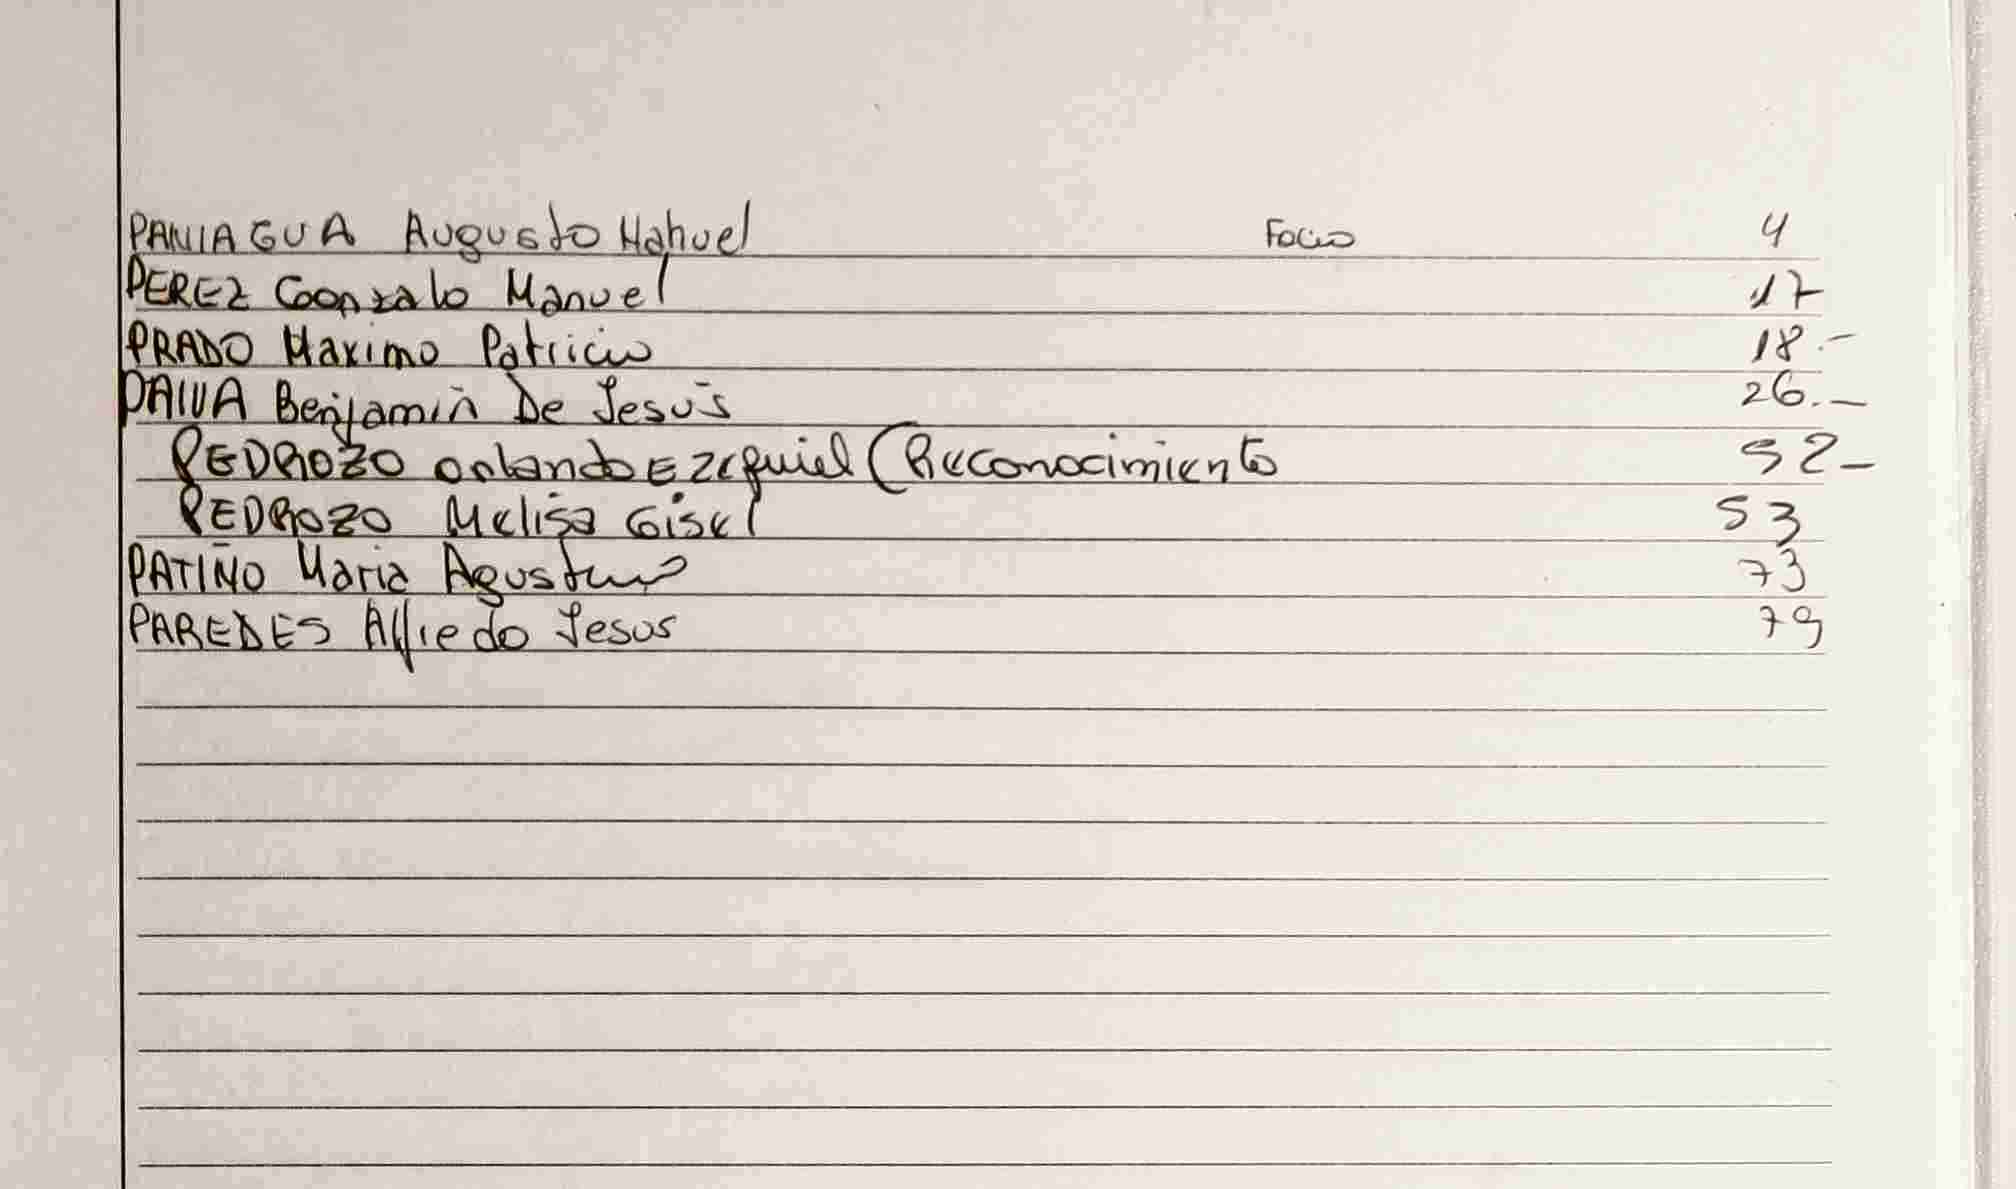 PANIAGUA Augusto Nahuel Folio 4
PEREZ Gonzalo Manuel 17
PRADO Maximo Patricio 18.-
PAIVA Benjamín De Jesús 26.-
PEDROZO Orlando Ezequiel (Reconocimiento 52-
PEDROZO Melisa Gisel 53
PATIÑO Maria Agustina 73
PAREDES Alfredo Jesus 79